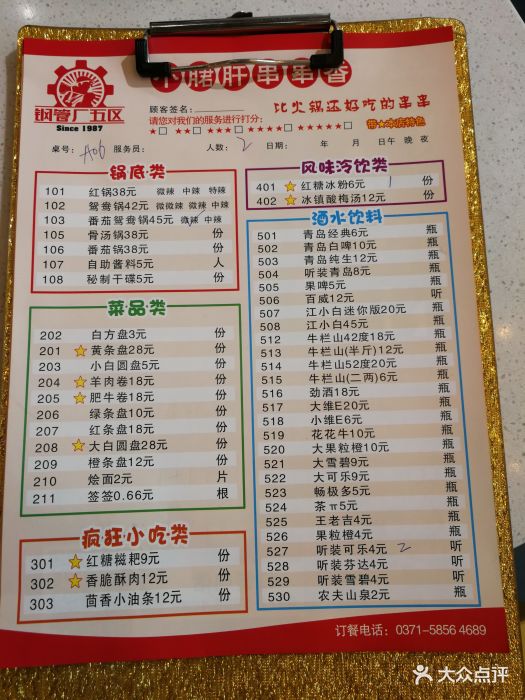 钢管厂五区
Since 1987
小腰肝串串香
顾客签名:
比火锅还好吃的串串
请您对我们的服务进行打分:
★□ ★★□ ★★★□ ★★★★□ ★★★★★□
带★本店特色
桌号: A06 服务员: 人数: 2 日期: 年 月 日午 晚 夜
锅底类
101 红锅38元 微辣 中辣 特辣
102 鸳鸯锅42元 微微辣 微辣 中辣
103 番茄鸳鸯锅45元 微辣 中辣
105 骨汤锅38元 份
106 番茄锅38元 份
107 自助酱料5元 人
108 秘制干碟5元 份
菜品类
202 白方盘3元 份
201 ★黄条盘28元 份
203 小白圆盘5元 份
204 ★羊肉卷18元 份
205 ★肥牛卷18元 份
206 绿条盘10元 份
207 红条盘18元 份
208 ★大白圆盘28元 份
209 橙条盘12元 份
210 烩面2元 片
211 签签0.66元 根
疯狂小吃类
301 ★红糖糍粑9元 份
302 ★香脆酥肉12元 份
303 茴香小油条12元 份
风味冷饮类
401 ★红糖冰粉6元 1 份
402 ★冰镇酸梅汤12元 份
酒水饮料
501 青岛经典6元 瓶
502 青岛白啤10元 瓶
503 青岛纯生12元 瓶
504 听装青岛8元 瓶
505 果啤5元 瓶
506 百威12元 听
507 江小白迷你版20元 瓶
508 江小白45元 瓶
512 牛栏山42度18元 瓶
513 牛栏山(半斤)12元 瓶
514 牛栏山52度20元 瓶
515 牛栏山(二两)6元 瓶
516 劲酒18元 瓶
517 大维E20元 瓶
518 小维E6元 瓶
519 花花牛10元 瓶
520 大果粒橙10元 瓶
521 大雪碧9元 瓶
522 大可乐9元 瓶
523 畅极多5元 瓶
524 茶π5元 瓶
525 王老吉4元 瓶
526 果粒橙4元 瓶
527 听装可乐4元 2 听
528 听装芬达4元 听
529 听装雪碧4元 听
530 农夫山泉2元 瓶
订餐电话: 0371-5856 4689
大众点评